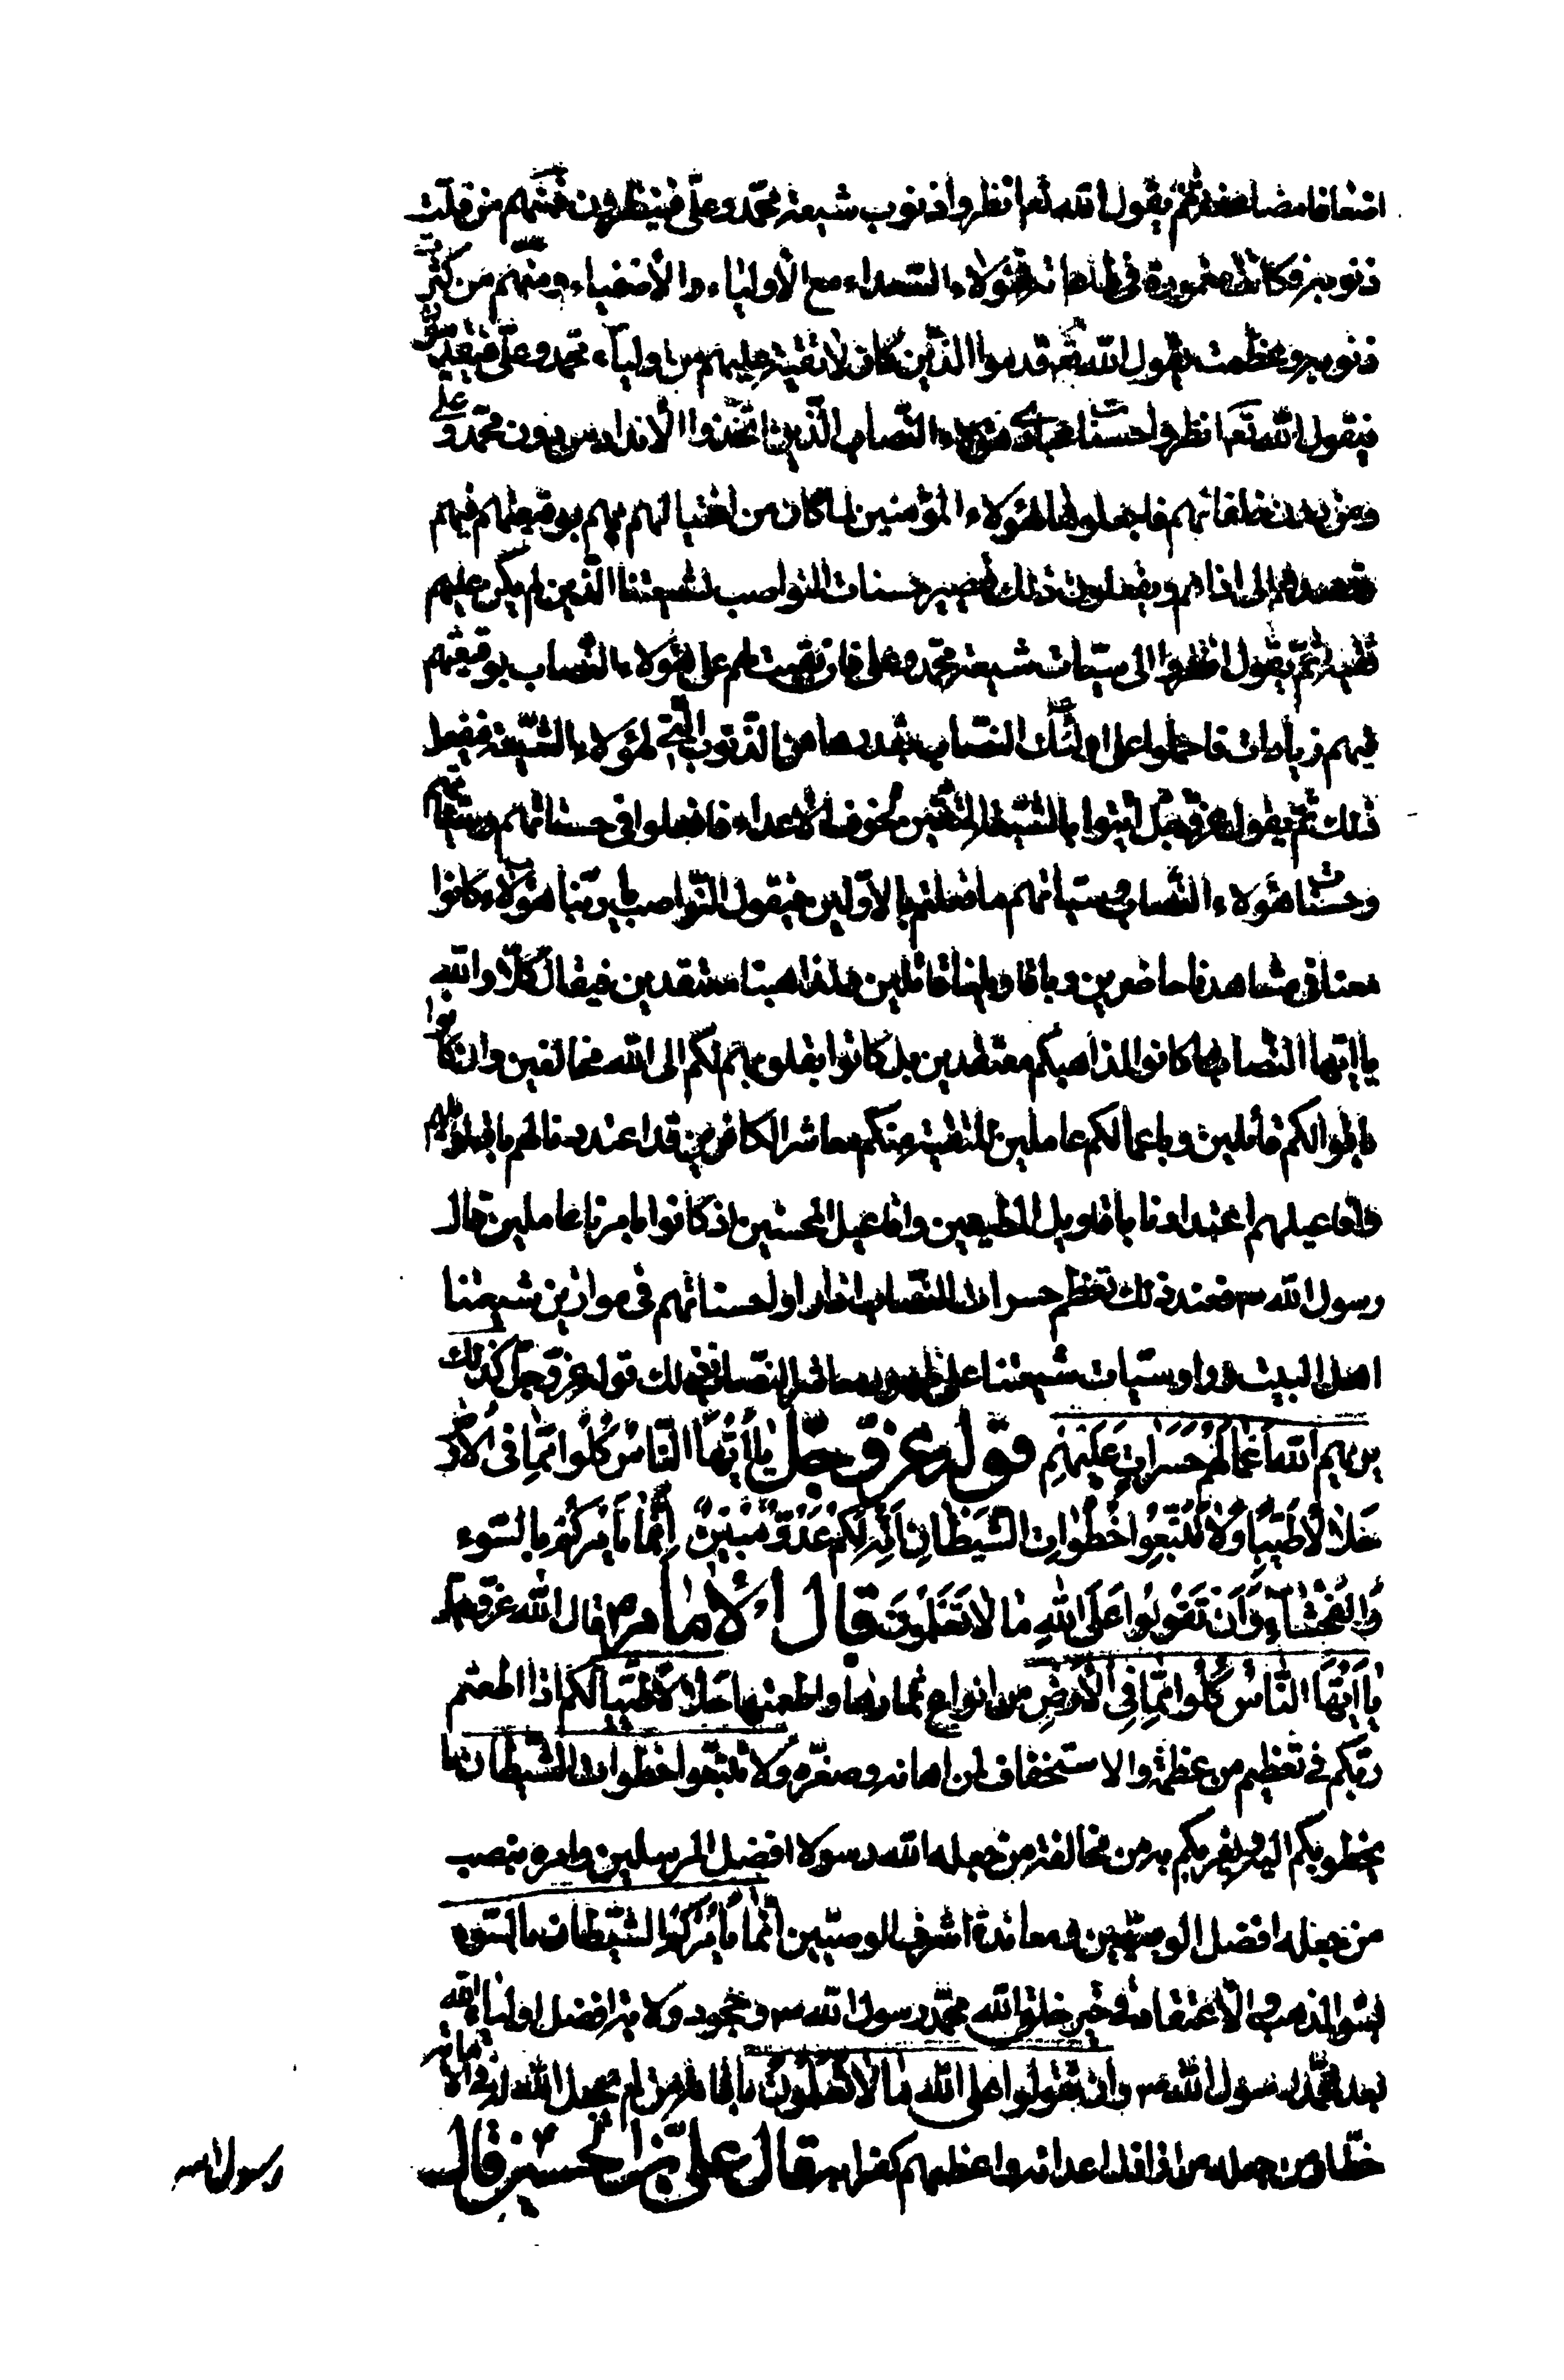 اضعافا مضاعفة ثم يقول الله تعا انظروا ذنوب شيعة محمد وعلى فينظرون فمنهم من قلت
ذنوبه فكانت مغمورة في طاعاته فهؤلاء السعداء مع الأولياء والأصفياء ومنهم من كثرت
ذنوبه وعظمت يقول الله تعه قدموا الذين كان لا تقية عليهم من اولياء محمد وعلى فيقدمون
فيقول الله تعا انظروا حسنات عبادى هؤلاء النصاب الذين اتخذوا الأنداد من دون محمد وعلى
ومن دون خلفائهم فاجعلوها لهؤلاء المؤمنين لما كان من اغتيالهم لهم بوقيعتهم فيهم
وقصدهم إلى اذاهم ويفعلون ذلك فتصير حسنات النواصب لشيعتنا الذين لم يكن عليهم
تقية ثم يقول انظروا الى سيئات شيعة محمد وعلى فان بقيت لهم على هؤلاء النصاب بوقيعتهم
فيهم زيادات فاحملوا على اولئك النصاب بقدرها من الذنوب التي لهؤلاء الشيعة فيفعل
ذلك ثم يقول عز وجل ائتوا بالشيعة المتقين لخوف الاعداء فافعلوا في حسناتهم وسيئاتهم
وحسنات هؤلاء النصاب وسيئاتهم ما فعلتم بالأولين فيقول النواصب يا ربنا هؤلاء كانوا
معنا في مشاهدنا حاضرين وباقاويلنا قائلين ولمذاهبنا معتقدين فيقال كلا والله
يا ايها النصاب ما كانوا لمذاهبكم معتقدين بل كانوا بقلوبهم لكم الى الله مخالفين وان كانوا
باقوالكم قائلين وباعمالكم عاملين للتقية منكم معاشر الكافرين قد اعتددنا لهم باقاويلهم
وافاعيلهم اعتدادنا باقاويل المطيعين وافاعيل المحسنين اذ كانوا بامرنا عاملين قال
رسول الله ص فعند ذلك تعظم حسرات النصاب اذا راوا حسناتهم في موازين شيعتنا
اهل البيت وراوا سيئات شيعتنا على ظهور معاشر النصاب وذلك قوله عز وجل كذلك
يريهم الله اعمالهم حسرات عليهم قوله عز وجل يا أيها الناس كلوا مما في الأرض
حلالا طيبا ولا تتبعوا خطوات الشيطان انه لكم عدو مبين إنما يأمركم بالسوء
والفحشاء وأن تقولوا على الله ما لا تعلمون قال الامام ع قال الله عز وجل
يا ايها الناس كلوا مما في الأرض من انواع ثمارها واطعمتها حلالا طيبا لكم اذا اطعتم
ربكم في تعظيم من عظمه والاستخفاف لمن اهانه وصغره ولا تتبعوا خطوات الشيطان ما
يخطو بكم اليه ويغريكم به من مخالفة من جعله الله رسولا افضل المرسلين وامره بنصب
من جعله افضل الوصيين ومعاندة اشرف الوصيين انما يأمركم الشيطان بالسوء
بسوء المذهب والاعتقاد في خير خلق الله محمد رسول الله ص وجحود ولاية افضل اولياء الله
بعد محمد رسول الله ص وان تقولوا على الله ما لا تعلمون بامامة من لم يجعل الله له في الامامة
حظا ومن جعله من اراذل اعدائه واعظمهم كفرا به قال على بن الحسين ع قال
رسول الله